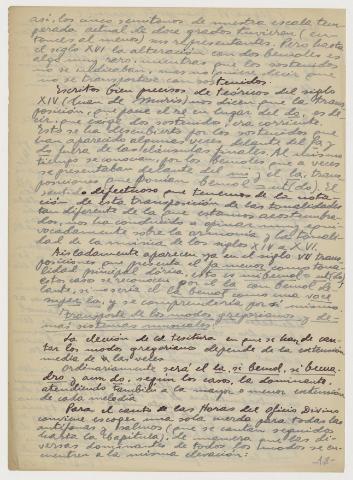 así, los cinco semitonos de nuestra escala tem
perada actual de doce grados tuvieran (en
tonces al menos) sus representantes. Pero hasta
el siglo XVI la alteración con los bemoles es
algo muy raro, mientras que los sostenidos
no se indicaban, mas no quiere decir que
no se transportara con sostenidos.
Escritos bien precisos de teóricos del siglo
XIV (Juan de Muris) nos dicen que la trans
posición, que pone el re en lugar del do, es de
cir, que exige dos sostenidos, era corriente.
Esto se ha descubierto por los sostenidos que
han aparecido algunas veces delante del fa y
do fuera de las cláusulas finales. Al mismo
tiempo se conocían, por los bemoles que a veces
se presentaban delante del mi y el la, trans
posiciones que ponían bemol a ut (do). El
sentido defectuoso que tenemos de la nota
ción de esta transposición de las tonalidades
tan diferente de la que estamos acostumbra
dos, nos ha conducido a opinar muy equi
vocadamente sobre la armonía y la tonali
dad de la música de los siglos XIV a XVI.
Aisladamente aparecen ya en el siglo VII trans
posiciones que presentan fa menor como tona
lidad principal dórica, esto es mi bemol sol la
estos casos se reconocen por el la con bemol de
lante, si no sería el la bemol como una voce
super la, y se comprendería por mi mínimo.
Transporte de los modos gregorianos y de
más sistemas musicales.
La elección de la tesitura en que se han de can
tar los modos gregorianos depende de la extensión
media de las voces
Ordinariamente será el la, si bemol, si becua
dro, o aun do, según los casos, la dominante,
atendiendo también a la mayor o menor extensión
de cada melodía
Para el canto de las Horas del Oficio Divino
conviene escoger una sola cuerda para todas las
antífonas y salmos (que se cantan seguidos
hasta la Capitula), de manera que las di
versas dominantes de todos los modos se en
cuentren a la misma elevación: